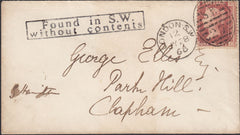 Found in S.W.
without contents
LONDON S.W.
George Ellis
Park Hill
Clapham